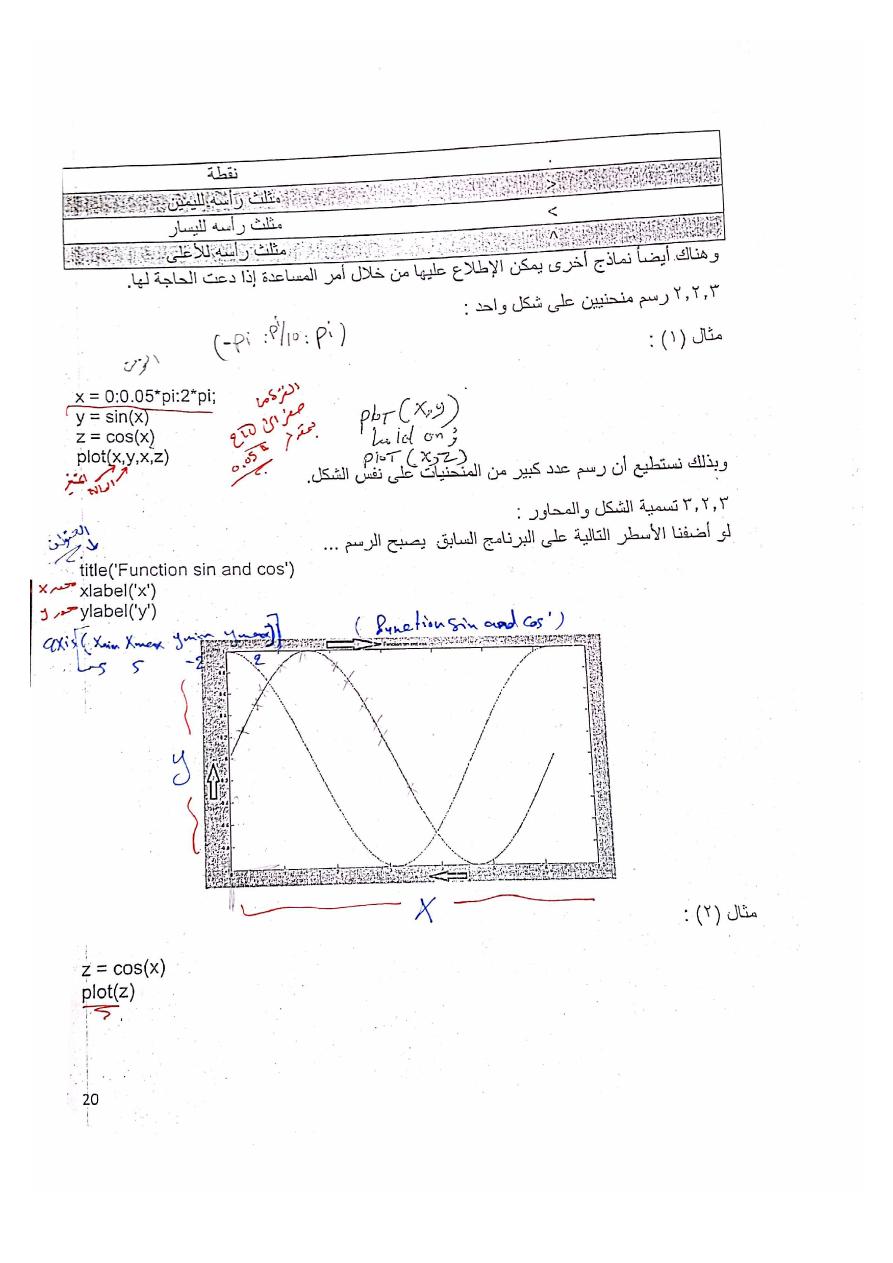 نقطة .
مثلث رأسه لليمين >
مثلث رأسه لليسار <
مثلث رأسه للأعلى ^
وهناك أيضاً نماذج أخرى يمكن الإطلاع عليها من خلال أمر المساعدة إذا دعت الحاجة لها.
٢,٢,٣ رسم منحنيين على شكل واحد :
مثال (١) :
(-pi :pi/10: pi)
x = 0:0.05*pi:2*pi;
y = sin(x)
z = cos(x)
plot(x,y,x,z)
plot(x,y)
hold on;
plot(x,z)
0.05
وبذلك نستطيع أن رسم عدد كبير من المنحنيات على نفس الشكل.
٣,٢,٣ تسمية الشكل والمحاور :
لو أضفنا الأسطر التالية على البرنامج السابق يصبح الرسم ...
العنوان
title('Function sin and cos')
محور x xlabel('x')
محور y ylabel('y')
axis([xmin xmax ymin ymax])
-5 5 -2 2
(function sin and cos')
Function sin and cos
y
x
مثال (٢) :
z = cos(x)
plot(z)
20